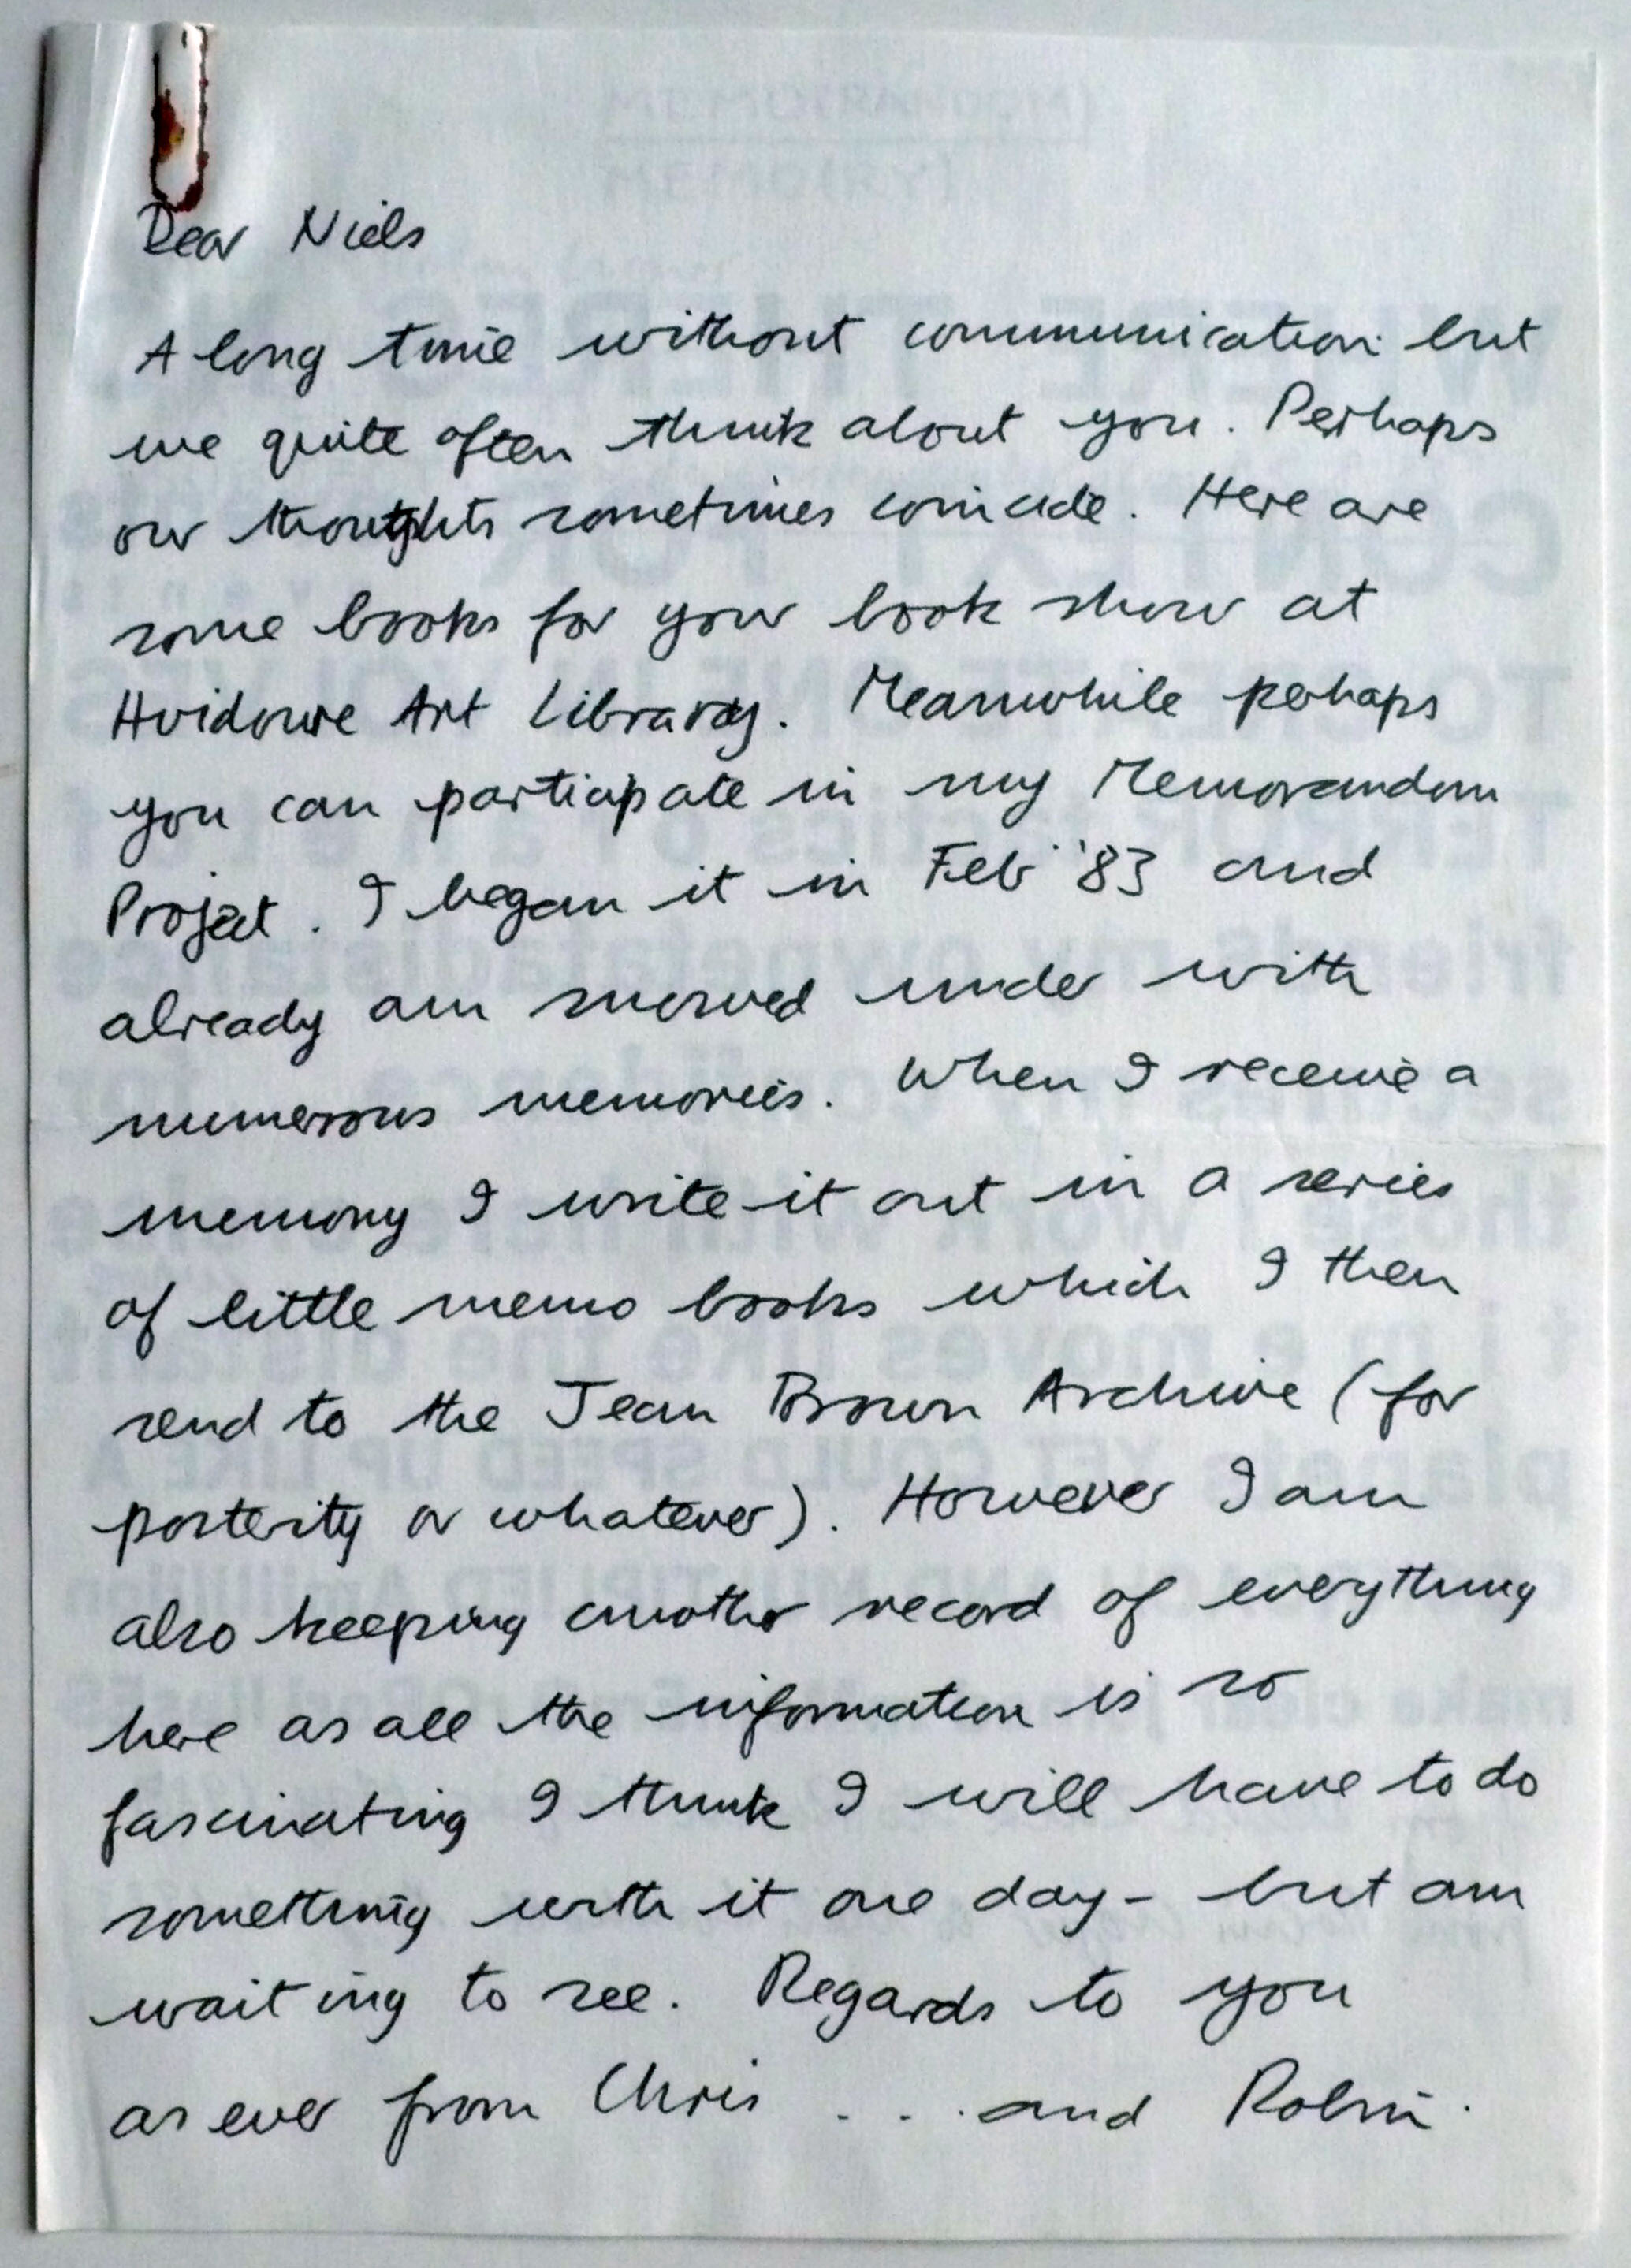 Dear Niels
A long time without communication but
we quite often think about you. Perhaps
our thoughts sometimes coincide. Here are
some books for your book show at
Hvidovre Art Library. Meanwhile perhaps
you can participate in my Memorandom
Project. I began it in Feb '83 and
already am snowed under with
numerous memories. When I receive a
memory I write it out in a series
of little memo books which I then
send to the Jean Brown Archive (for
posterity or whatever). However I am
also keeping another record of everything
here as all the information is so
fascinating I think I will have to do
something with it one day - but am
waiting to see. Regards to you
as ever from Chris ... and Robin.